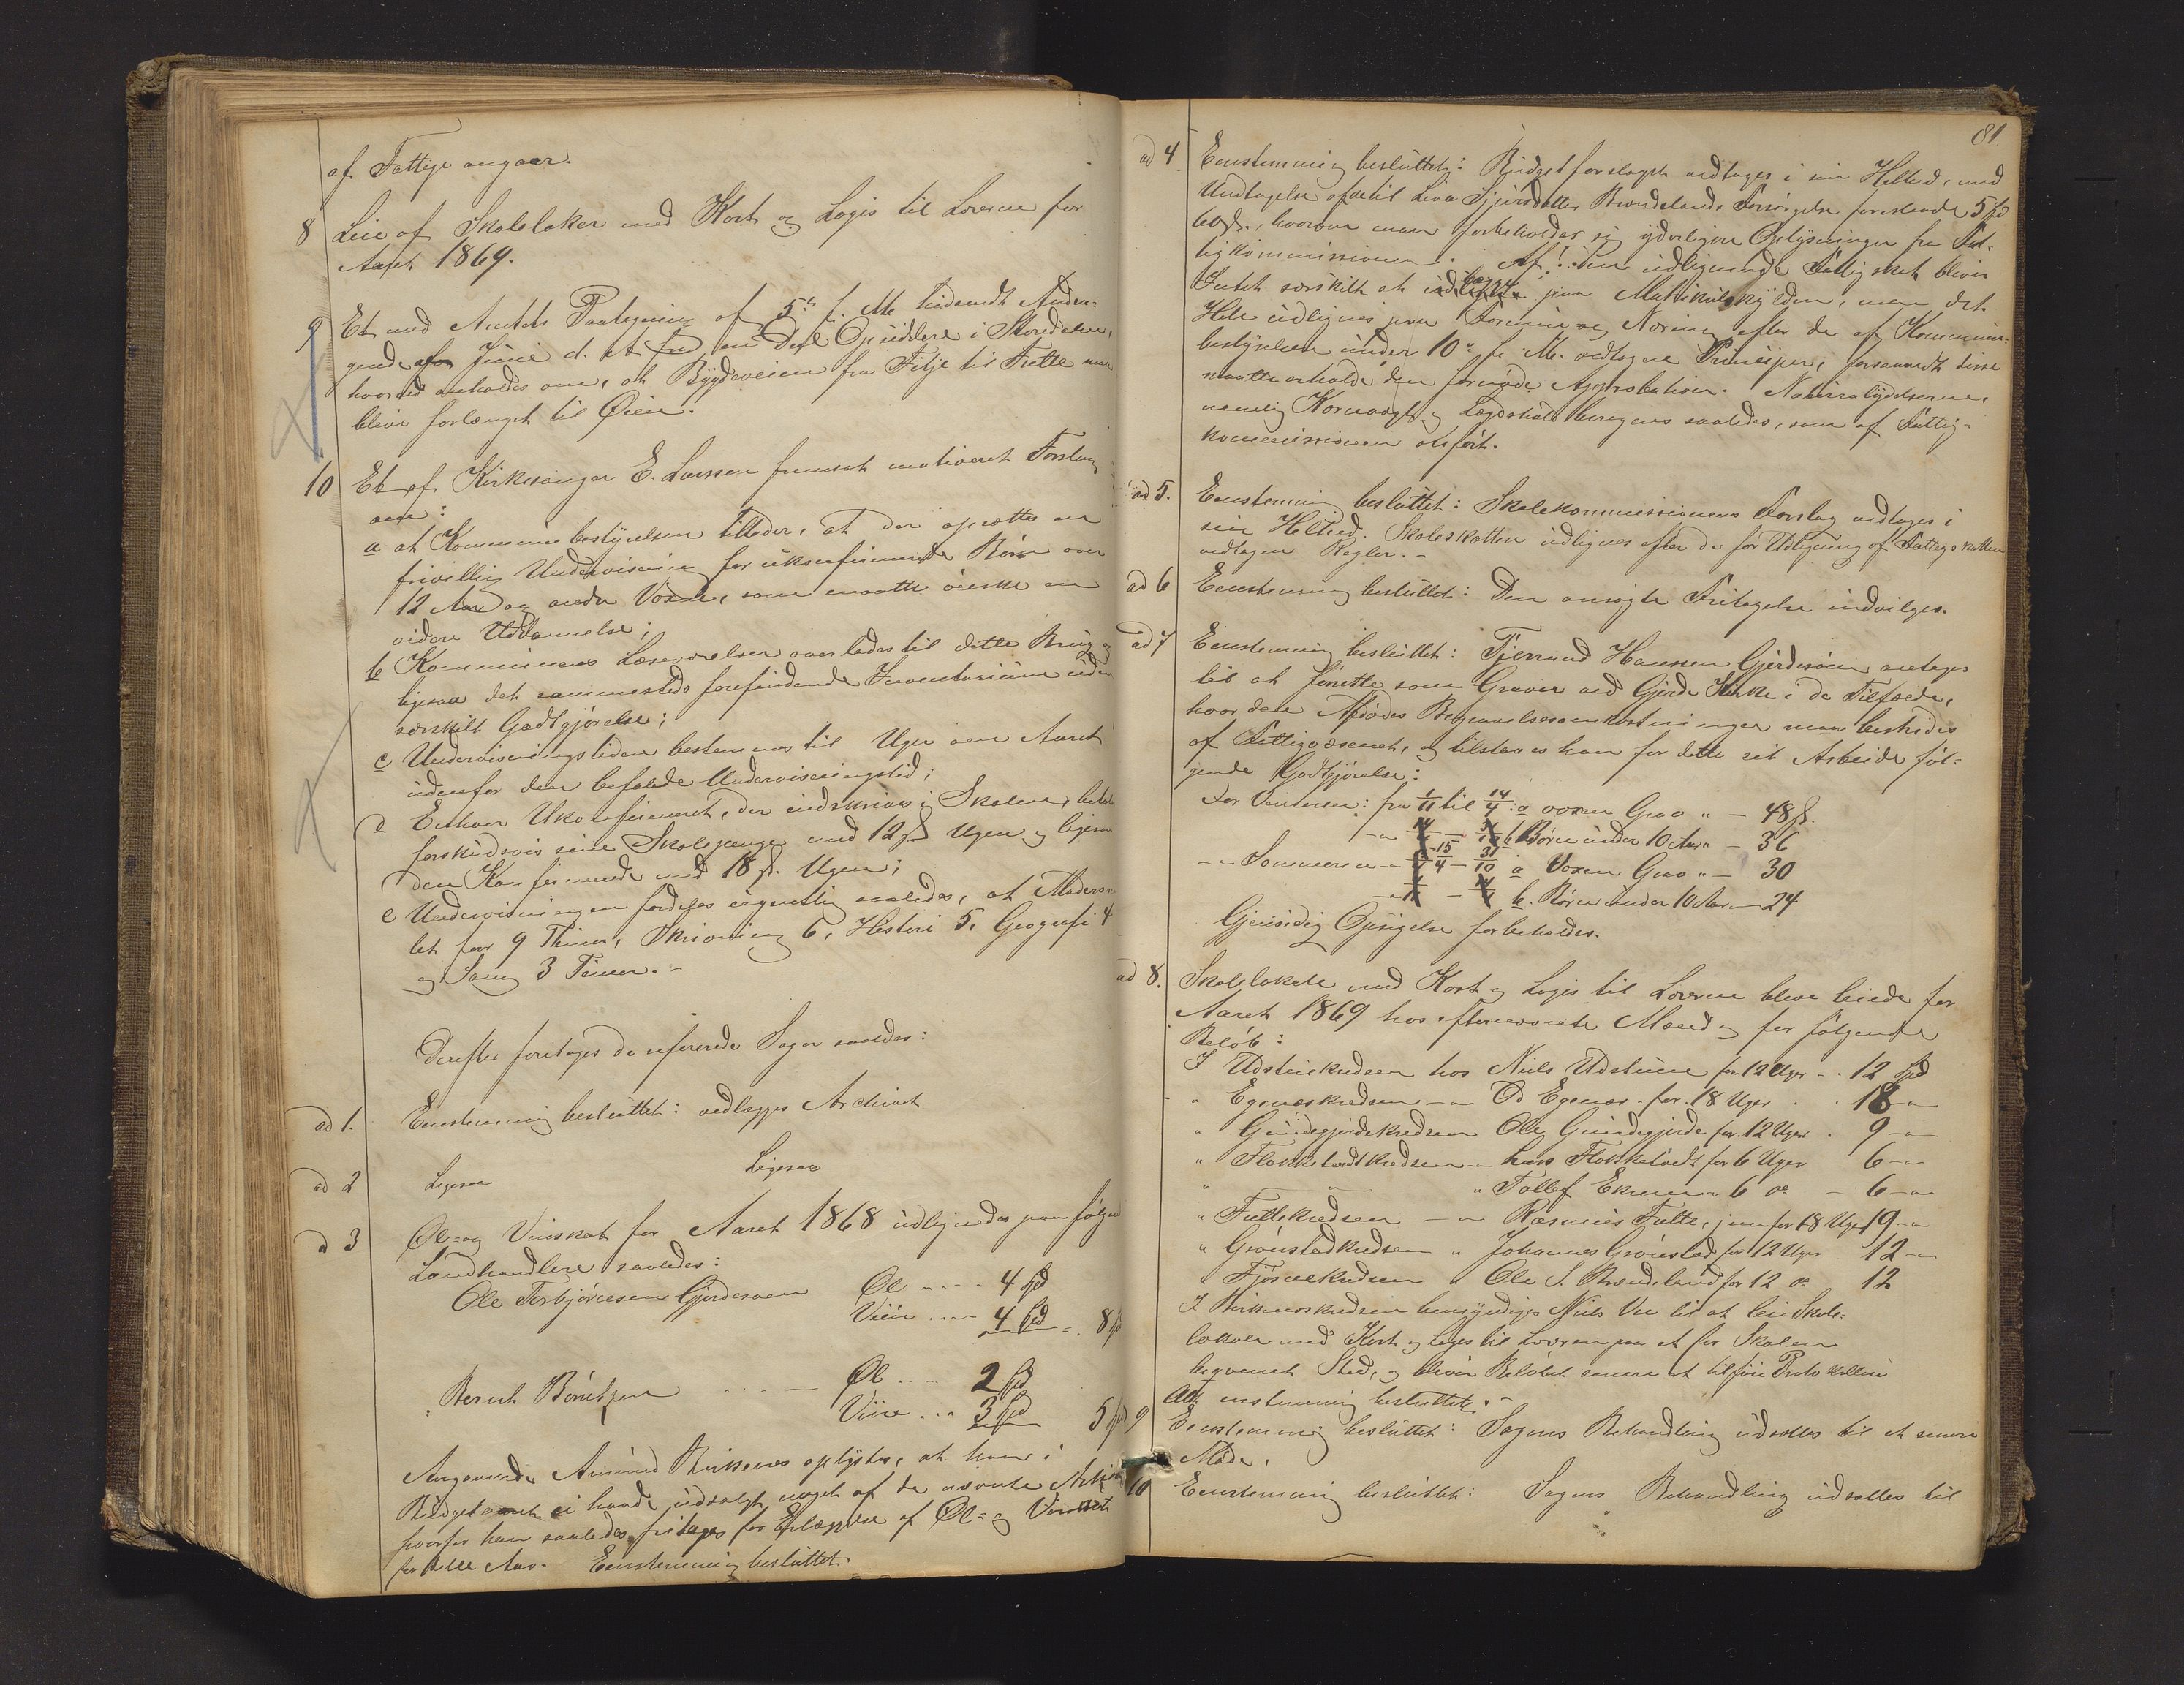 af Fattige angaar.
8 Leie af Skolelokaler med Kost og Logis til Lærerne for
Aaret 1869.
9 Et med Amtets Paategning af 5te f. M. tilsendt Andra-
gende af Juni d. A. fra en Deel Opsiddere i Skoredalen,
hvorved anholdes om, at Bygdeveien fra Filje til Frette maa
blive forlænget til Øien.
10 Et af Kirkesanger E. Larssen fremsat motiveret Forslag
om:
a at Kommunebestyrelsen tillader, at der oprettes en
frivillig Undervisning for ukonfirmerede Børn over
12 Aar og andre Voxne, som maatte ønske en
videre Uddannelse;
b Kommunens Læseværelser overlades til dette Brug og
ligesaa det sammesteds forefindende Inventarium uden
særskilt Godtgjørelse;
c Undervisningstiden bestemmes til Uger om Aaret
udenfor den befalede Undervisningstid;
d Enhver Ukonfirmeret, der indskrives i Skolen, betale
forskudsvis sine Skolepenge med 12 ß Ugen og ligesaa
den Konfirmerede med 18 ß. Ugen;
e Undervisningen fordeles ugentlig saaledes, at Modersmaa-
let faar 9 Timer, Skrivning 6, Historie 5, Geografi 4
og Sang 3 Timer.-
Derefter foretages de refererede Sager saaledes:
ad 1. Eenstemmig besluttet: vedlægges Archivet
ad 2 Ligesaa Ligesaa
ad 3 Øl- og Vinskat for Aaret 1868 udlignedes paa følgende
Landhandlere saaledes:
Ole Torbjørnesen Gjerdesøen Øl .... 4 Spd
Viin .... 4 Spd =. 8 Spd
Bernt Børretzen .... Øl .... 2 Spd
Viin ... 3 Spd 5 Spd
Angaaende Amund Birkenes oplystes, at han i
Budgetaaret ei havde udsolgt noget af de nævnte Artikler
hvorfor han saaledes fritages for Erlæggelse af Øl- og Vinskat
for dette Aar. Eenstemmig besluttet.
81
ad 4 Eenstemmig besluttet: Budgetforslaget vedtages i sin Helhed, med
Undtagelse af de til Liva Sjursdatter Brandelands Forsørgelse foreslaaede 5 Spd
60 ß., hvorom man forbeholder sig yderligere Oplysninger fra Fat-
tigkommissionen. Af den udlignende Fattigskat bliver
Intet særskilt at udligne paa Matrikulskylden, men det
Hele udlignes paa Formue og Næring efter de af Kommune-
bestyrelsen under 10de f. M. vedtagne Principer, forsaavidt disse
maatte erholde den fornødne Approbation. Naturalydelserne,
nemlig Kornvægt og Lægdshold beregnes saaledes, som af Fattig-
kommissionen anført.
ad 5. Eenstemmig besluttet: Skolekommissionens Forslag vedtages i
sin Helhed. Skoleskatten udlignes efter de for Udligning af Fattigskatten
vedtagne Regler.-
ad 6 Eenstemmig besluttet: Den ansøgte Fritagelse indvilges.
ad 7 Eenstemmig besluttet: Tjerand Hanssen Gjerdesøen antages
til at forrette som Graver ved Gjerde Kirke i de Tilfælde,
hvor den Afdødes Begravelsesomkostninger maa bestrides
af Fattigvæsenet, og tilstaaes ham for dette sit Arbeide føl-
gende Godtgjørelse:
For Vinteren: fra 1/11 til 14/4: a voxen Grav " — 48 ß.
b Børn under 10 Aar " — 36
-"- Sommeren -"- 15/4 — 31/10 a Voxen Grav " — 30
b. Børn under 10 Aar — 24
Gjensidig Opsigelse forbeholdes.
ad 8. Skolelokale med Kost og Logis til Lærerne bleve leiede for
Aaret 1869 hos efternævnte Mænd og for følgende
Beløb:
I Udstuekredsen hos Niels Udstuene for 12 Uger -. 12 Spd
" Egenæskredsen -"- Od Egenæs. for 18 Uger . . 18 -"-
" Gundegjerdekredsen Ole Gundegjerde for 12 Uger . 9 -"-
" Flokketvedtkredsen -"- Lars Flokketvedt for 6 Uger 6 -"-
" " " Tollef Ekrene " 6 do — 6 -"-
" Frettekredsen -"- Rasmus Frette, jun for 18 Uger 19 -"-
" Grønstadkredsen " Johannes Grønstad for 12 Uger 12 -"-
" Fjøsnekredsen " Ole S. Brandeland for 12 do 12
I Birkenæskredsen bemyndiges Niels Vee til at leie Skole-
lokale med Kost og Logis til Læreren paa et for Skolen
beqvemt Sted, og bliver Beløbet senere at tilføie Protokollen
Alt eenstemmig besluttet.-
9 Eenstemmig besluttet: Sagens Behandling udsættes til et senere
Møde.
10 Eenstemmig besluttet: Sagens Behandling udsættes til